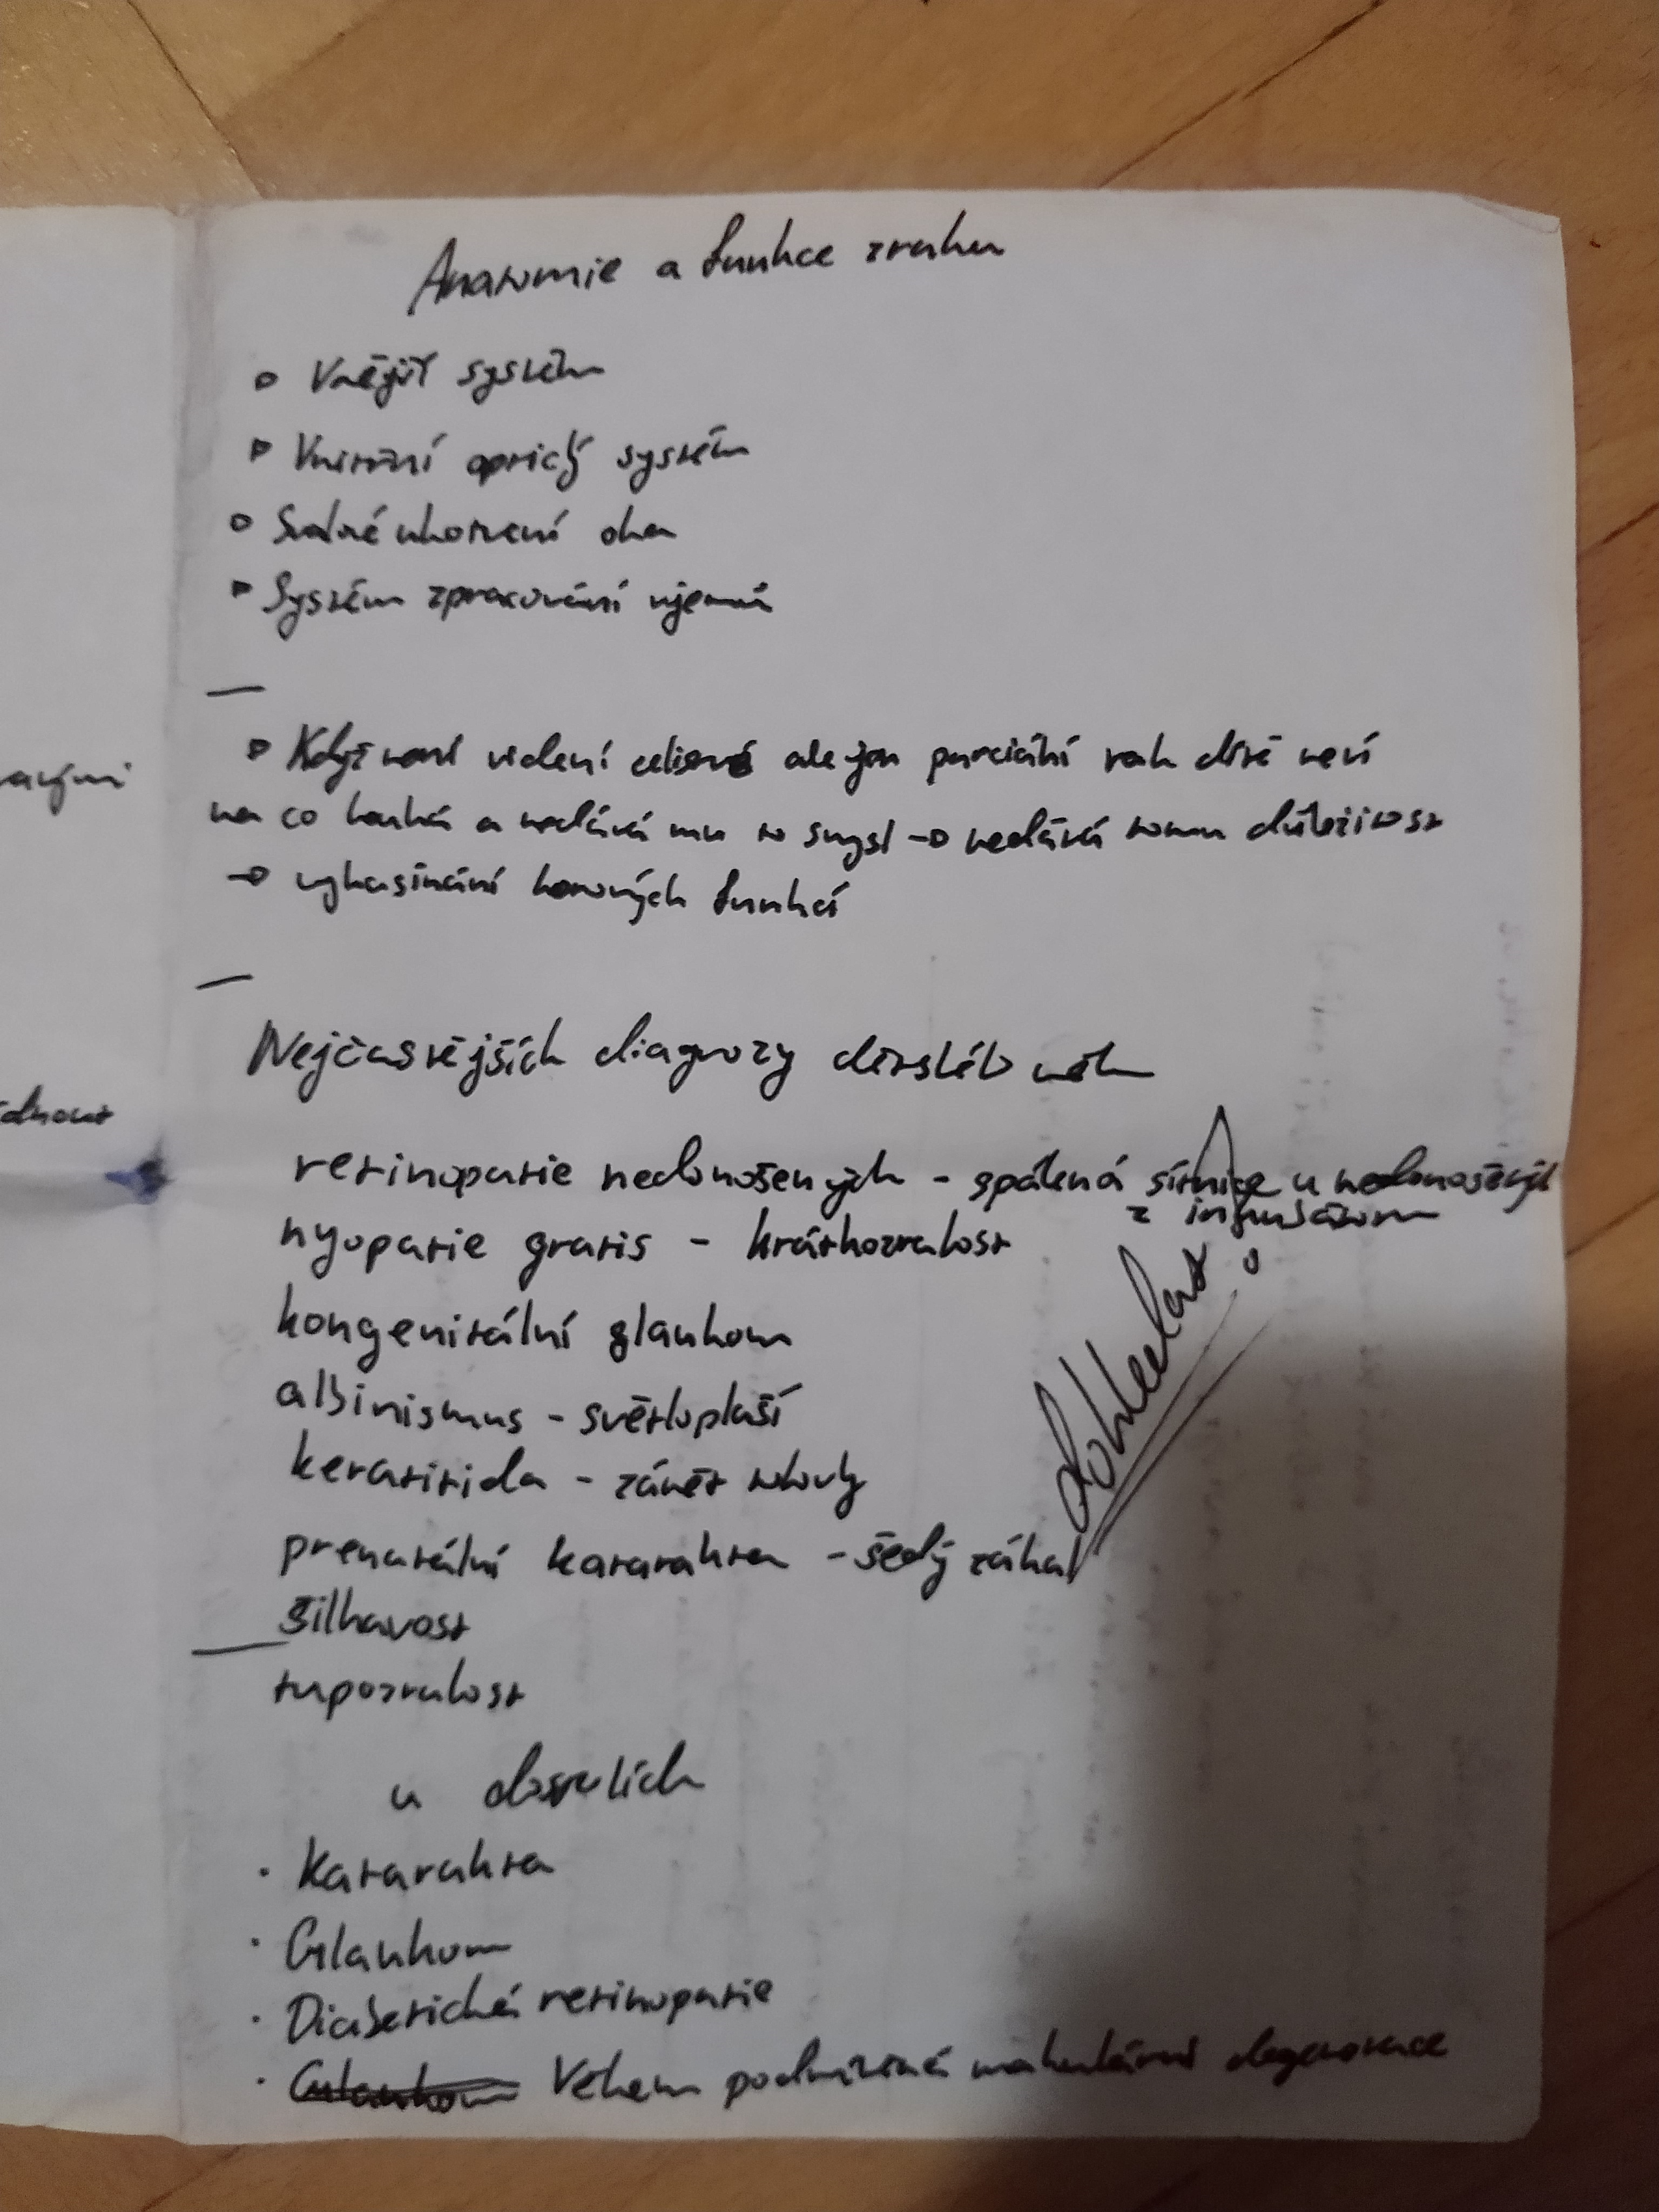 Anatomie a funkce zraku
Vnější systém
Vnitřní optický systém
Svalové ukotvení oka
Systém zpracování vjemů
Když není videní celisvé ale jen parciální tak dítě neví
na co kouká a nedává mu to smysl → nedává tomu důležitost
→ vyhasínání korových funkcí
Nejčastějších diagnozy dětského věk
retinopatie nedonošených - spálená sítnice u nedonošených
z inkubátoru
myopatie gratis - krátkozralost
kongenitální glaukom
albinismus - světloplaší
keratitida - zánět rohovky
prenatální katarakta - šedý zákal
šilhavost
tupozralost
dohledat!
u dospělích
Katarakta
Glaukom
Diabetická retinopatie
Glaukom Věkem podmíněná makulární degenerace
ídnout